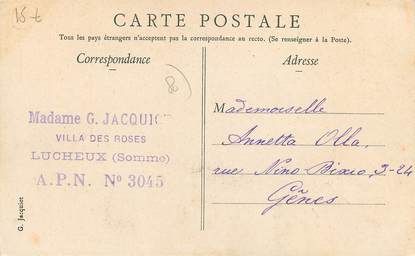 15 t
CARTE POSTALE
Tous les pays étrangers n'acceptent pas la correspondance au recto. (Se renseigner à la Poste).
Correspondance
Adresse
8
Madame G. JACQUIOT
VILLA DES ROSES
LUCHEUX (Somme)
A.P.N. Nº 3045
Mademoiselle
Annetta Olla
rue Nino Bixio, 3-24
Gênes
G. Jacquiot